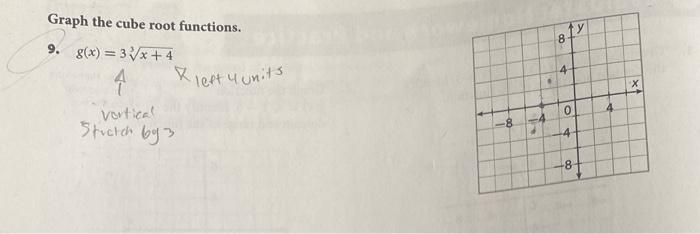 Graph the cube root functions.
9. g(x) = 3∛x + 4
left 4 units
vertical
Stretch by 3
y
8
4
x
-8 -4 0 4
-4
-8